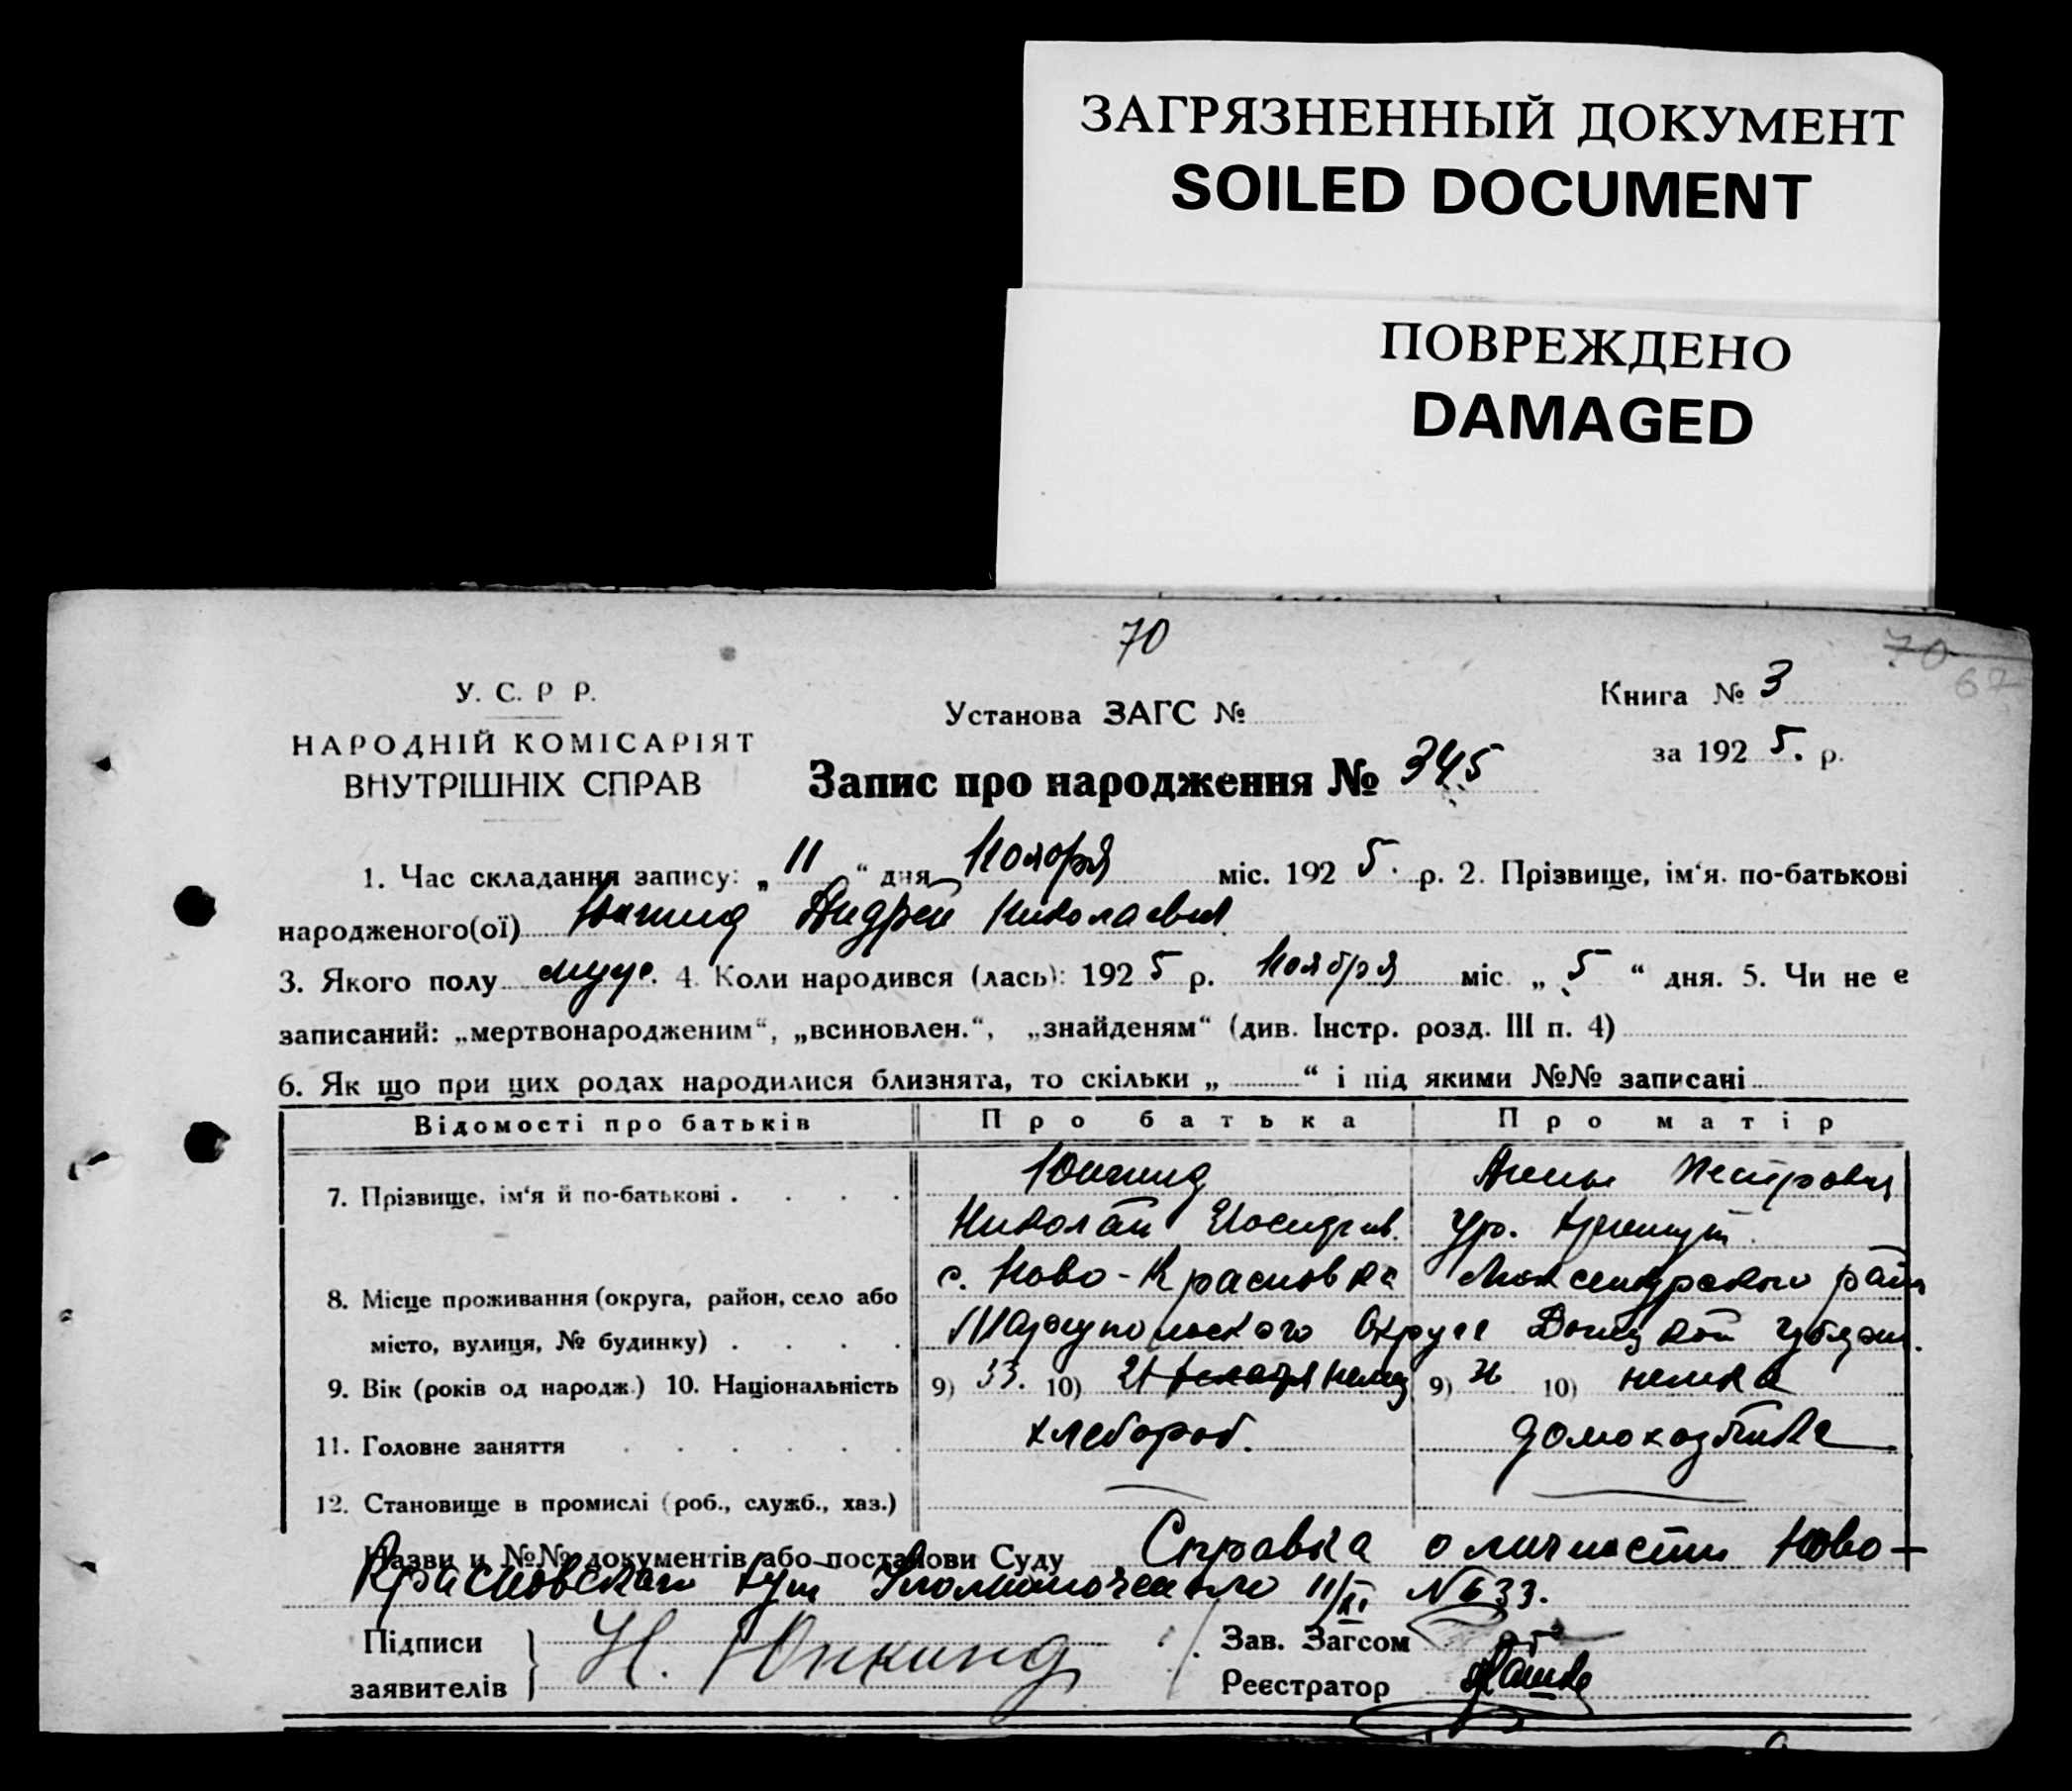 ЗАГРЯЗНЕННЫЙ ДОКУМЕНТ
SOILED DOCUMENT
ПОВРЕЖДЕНО
DAMAGED
70
70
67
У. С. Р Р.
НАРОДНІЙ КОМІСАРІЯТ
ВНУТРІШНІХ СПРАВ
Установа ЗАГС №
Книга № 3
за 1925. р.
Запис про народження № 345
1. Час складання запису: „ 11 “ дня Ноября міс. 1925. р. 2. Прізвище, ім‘я. по-батькові
народженого(ої) Андрей Николаевич
3. Якого полу муж. 4. Коли народився (лась): 1925 р. Ноября міс. „ 5 “ дня. 5. Чи не е
записаний: „мертвонародженим“, „всиновлен.“, „знайденям“ (див. Інстр. розд. III п. 4)
6. Як що при цих родах народилися близнята, то скільки „ “ і під якими №№ записані
Відомості про батьків Про батька Про матір
7. Прізвище, ім‘я й по-батькові Юнкинд Петровна
Николай Иосифов. ур.
8. Місце проживання (округа, район, село або с. Ново-Красновка
місто, вулиця, № будинку) Мариупольского Округа Донецкой губерн.
9. Вік (років од народж.) 10. Національність 9) 33. 10) немец 9) 10) немка
11. Головне заняття хлебороб. домохозяйка
12. Становище в промислі (роб., служб., хаз.)
Назви и №№ документів або постанови Суду Справка о личности Ново-
Красновского Уполномоченого 11/XI N 633.
Підписи
заявителів
Н. Юнкинд
Зав. Загсом
Реєстратор